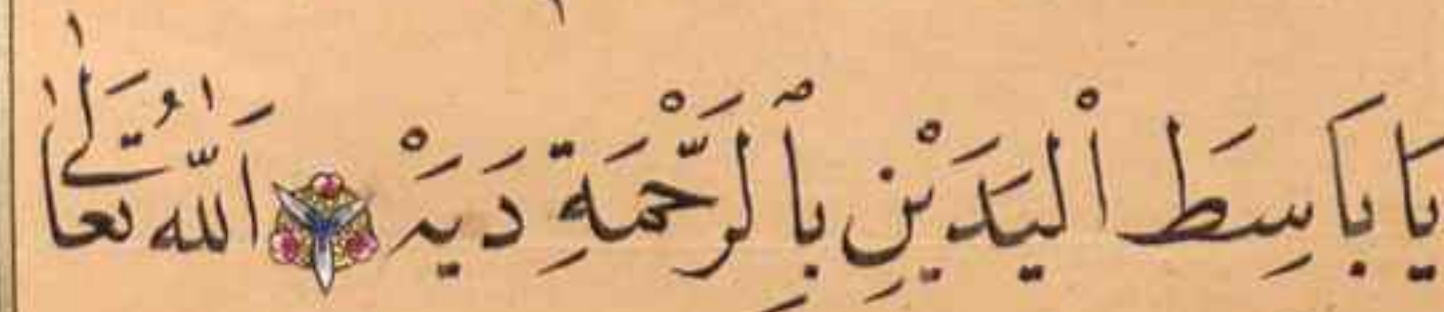 يَا بَاسِطَ ٱلْيَدَيْنِ بِٱلرَّحْمَةِ دَيَرْ ۞ اَللّٰهُ تَعَالٰى